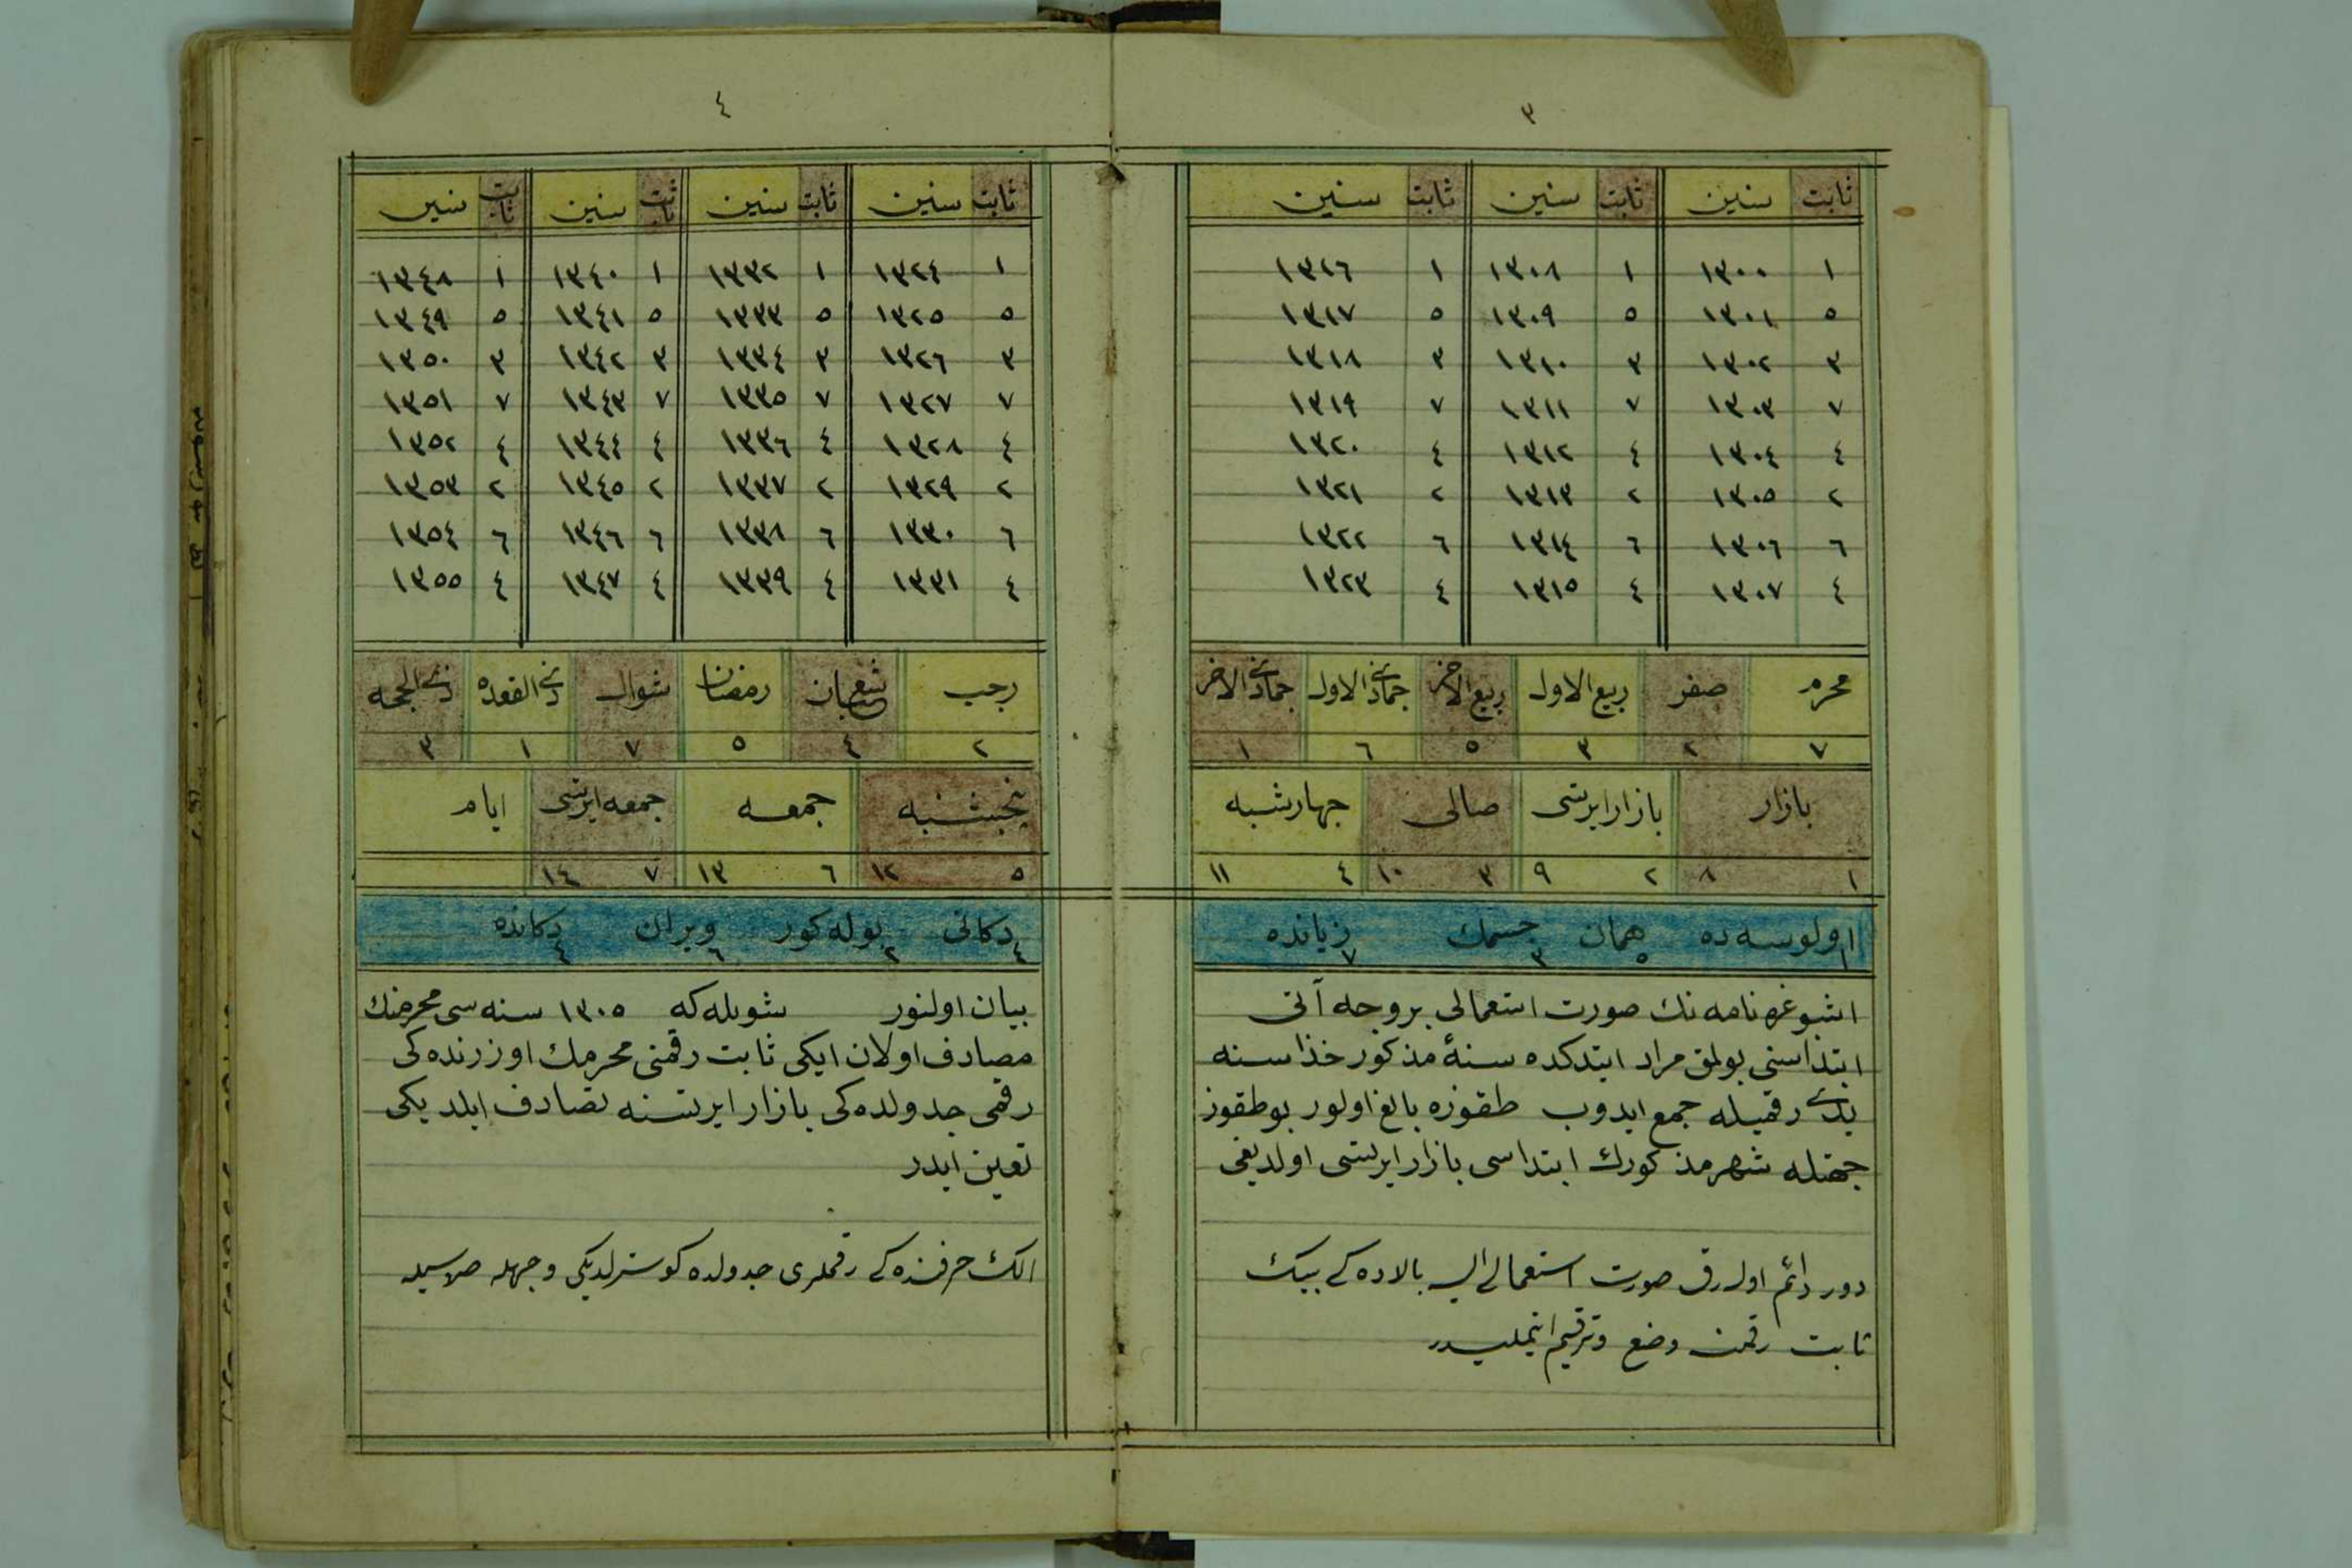 ٣
ثابت سنين ثابت سنين ثابت سنين
١ ١٣٠٠ ١ ١٣٠٨ ١ ١٣١٦
٥ ١٣٠١ ٥ ١٣٠٩ ٥ ١٣١٧
٣ ١٣٠٢ ٣ ١٣١٠ ٣ ١٣١٨
٧ ١٣٠٣ ٧ ١٣١١ ٧ ١٣١٩
٤ ١٣٠٤ ٤ ١٣١٢ ٤ ١٣٢٠
٢ ١٣٠٥ ٢ ١٣١٣ ٢ ١٣٢١
٦ ١٣٠٦ ٦ ١٣١٤ ٦ ١٣٢٢
٤ ١٣٠٧ ٤ ١٣١٥ ٤ ١٣٢٣
محرم صفر ربيع الاول ربيع الاخر جماذى الاول جماذى الاخر
٧ ٢ ٣ ٥ ٦ ١
بازار بازار ايرتسى صالى جهارشبه
١ ٨ ٢ ٩ ٣ ١٠ ٤ ١١
اولوسه ده همان جسمك زيانده
١ ٥ ٣ ٧
اشبو غره نامه نك صورت استعمالى بروجه آتى
ابتداسنى بولمق مراد ايتدكده سنۀ مذكور خذا سنه
يدى رقميله جمع ايدوب طقوزه بالغ اولور بو طقوز
جهتله شهر مذكورك ابتداسى بازار ايرتسى اولديغى
دور دائم اوله رق صورت استعمالى بالاده كى بيتك
ثابت رقمن وضع وترقيم ايتمليدر
٤
ثابت سنين ثابت سنين ثابت سنين ثابت سنين
١ ١٣٢٤ ١ ١٣٣٢ ١ ١٣٤٠ ١ ١٣٤٨
٥ ١٣٢٥ ٥ ١٣٣٣ ٥ ١٣٤١ ٥ ١٣٤٩
٣ ١٣٢٦ ٣ ١٣٣٤ ٣ ١٣٤٢ ٣ ١٣٥٠
٧ ١٣٢٧ ٧ ١٣٣٥ ٧ ١٣٤٣ ٧ ١٣٥١
٤ ١٣٢٨ ٤ ١٣٣٦ ٤ ١٣٤٤ ٤ ١٣٥٢
٢ ١٣٢٩ ٢ ١٣٣٧ ٢ ١٣٤٥ ٢ ١٣٥٣
٦ ١٣٣٠ ٦ ١٣٣٨ ٦ ١٣٤٦ ٦ ١٣٥٤
٤ ١٣٣١ ٤ ١٣٣٩ ٤ ١٣٤٧ ٤ ١٣٥٥
رجب شعبان رمضان شوال ذى القعده ذى الحجه
٢ ٤ ٥ ٧ ١ ٣
پنجشنبه جمعه جمعه ايرتسى ايام
٥ ١٢ ٦ ١٣ ٧ ١٤
دكانى بوله كور ويران دكانده
٤ ٢ ٦ ٤
بيان اولنور شويله كه ١٣٠٥ سنه سى محرمنك
مصادف اولان ايكى ثابت رقمنى محرمك اوزرنده كى
رقمى جدولده كى بازار ايرتسنه تصادف ايلديكى
تعين ايدر
الك حرفنده كى رقملرى جدولده كوسترلديكى وجهله صره سيله